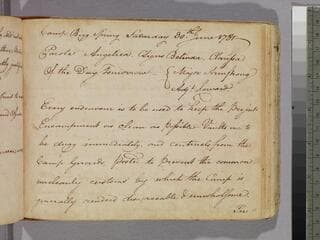 Camp Bigg Spring Saturday 30th June 1781
Parole Angelica CSigns Belinda, Clarissa
Of the Day Tomorrow { Major Armstrong
Adjt Seward
Every endeavour is to be used to keep the Present
Encampment as clean as Possible Vaults are to
be dugg immediately and centinels from the
Camp Guards Posted to Prevent the common
uncleanly customs by which the Camp is
generally rendered disagreeable & unwholsome
The